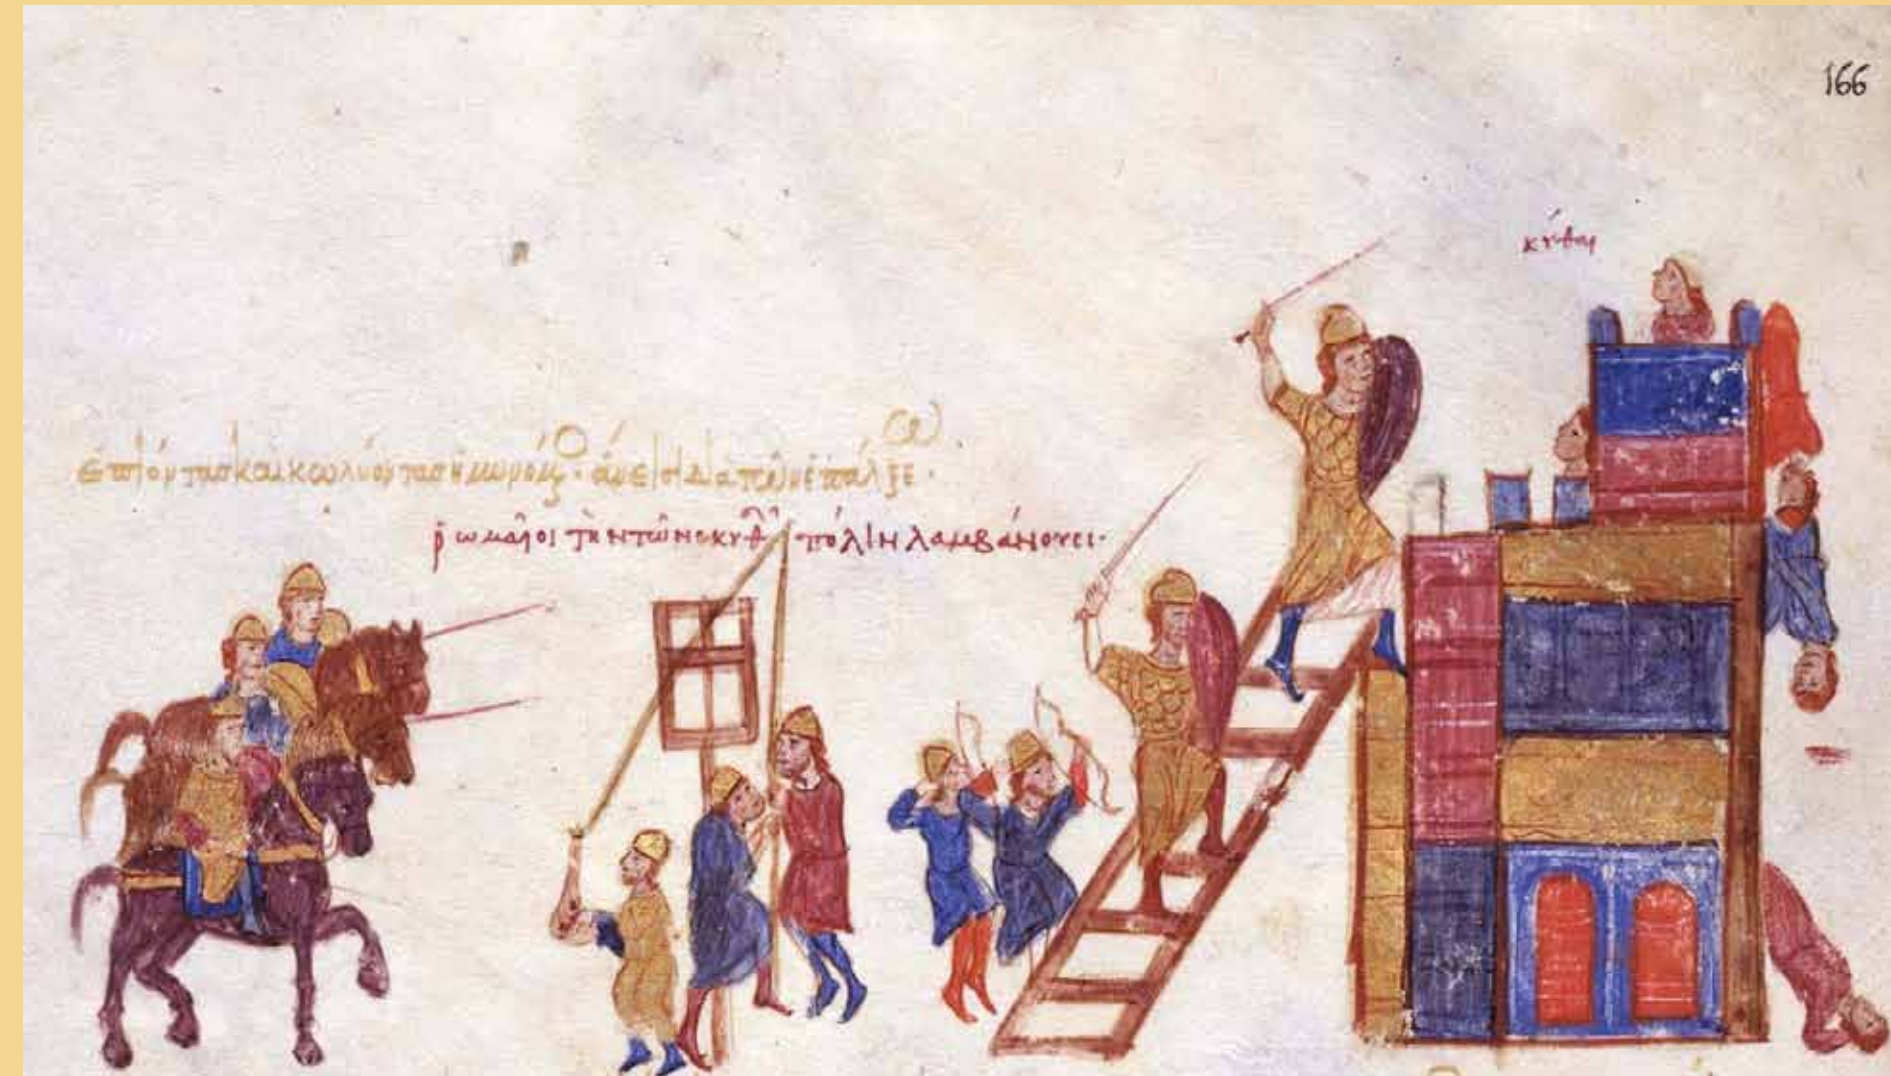 166
κύθαι
ἐπιόντας καὶ κωλύοντας ἄνεισι διὰ τῶν ἐπάλξεω·
ῥωμαῖοι τὴν τῶν σκυθ πόλιν λαμβάνουσι·